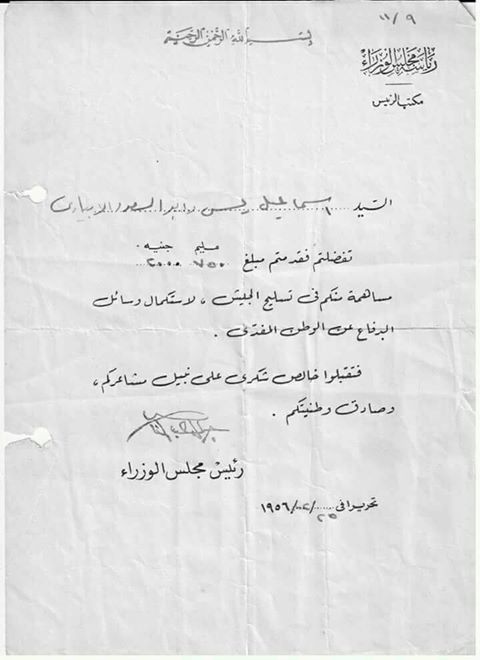 ١١/٩
بسم الله الرحمن الرحيم
رئاسة مجلس الوزراء
مكتب الرئيس
السيد اسماعيل يس وابو السعود الابيارى
مليم جنيه
تفضلتم فقدمتم مبلغ ٧٥٠ ٢٠٠٠
مساهمة منكم فى تسليح الجيش ، لاستكمال وسائل
الدفاع عن الوطن المفدّى .
فتقبلوا خالص شكرى على نبيل مشاعركم ،
وصادق وطنيتكم .
رئيس مجلس الوزراء
تحريرا فى ٢٥/ /١٩٥٦